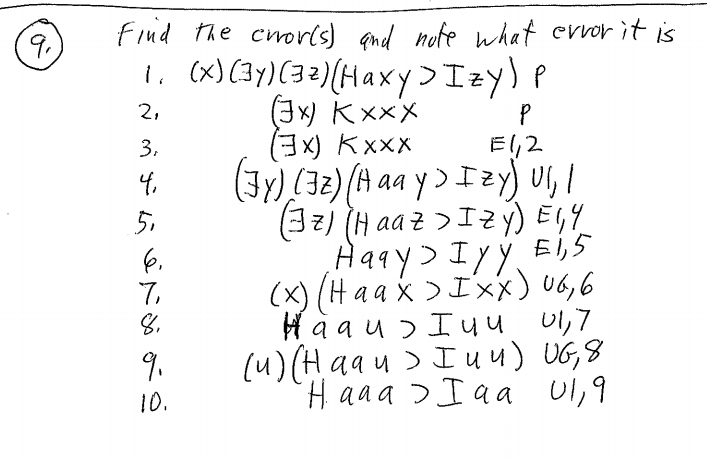 9. Find the error(s) and note what error it is
1. (x)(∃y)(∃z)(Haxy ⊃ Izy) P
2. (∃x) Kxxx P
3. (∃x) Kxxx EI,2
4. (∃y)(∃z)(Haay ⊃ Izy) UI,1
5. (∃z)(Haaz ⊃ Izy) EI,4
6. Haay ⊃ Iyy EI,5
7. (x)(Haax ⊃ Ixx) UG,6
8. Haau ⊃ Iuu UI,7
9. (u)(Haau ⊃ Iuu) UG,8
10. Haaa ⊃ Iaa UI,9